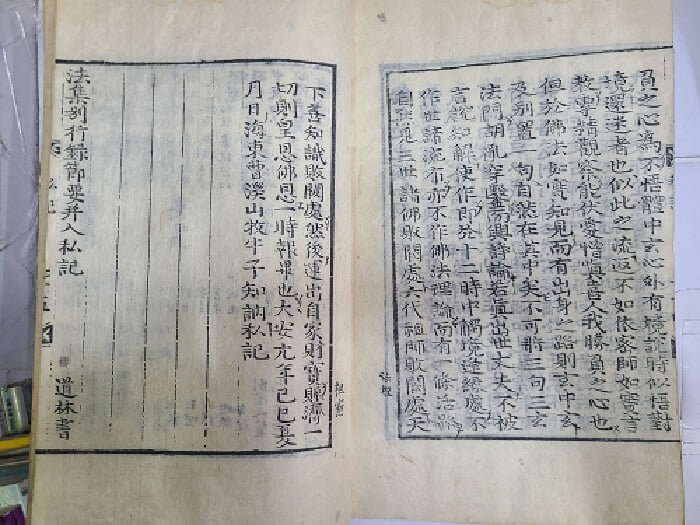 負之心爲不悟體中玄心外有境說時似悟對
境還迷者也似此之流返不如依密師如實言
敎專精觀察能伏愛憎嗔喜人我勝負之心也
但於佛法如實知見而有出身之路則玄中玄
及別置一句自然在其中矣不可將三句三玄
法門胡亂穿鑿而興諍論若眞出世丈夫不被
言說知解使作即於十二時中觸境逢緣處不
作世諦流布亦不作佛法理論而有一條活路
自然覷見三世諸佛敗闕處六代祖師敗闕處天
下善知識敗闕處然後運出自家財寶賑濟一
切則皇恩佛恩一時報畢也大安元年己巳夏
月日海東曹溪山牧牛子知訥私記
法集別行錄節要并入私記
道林書